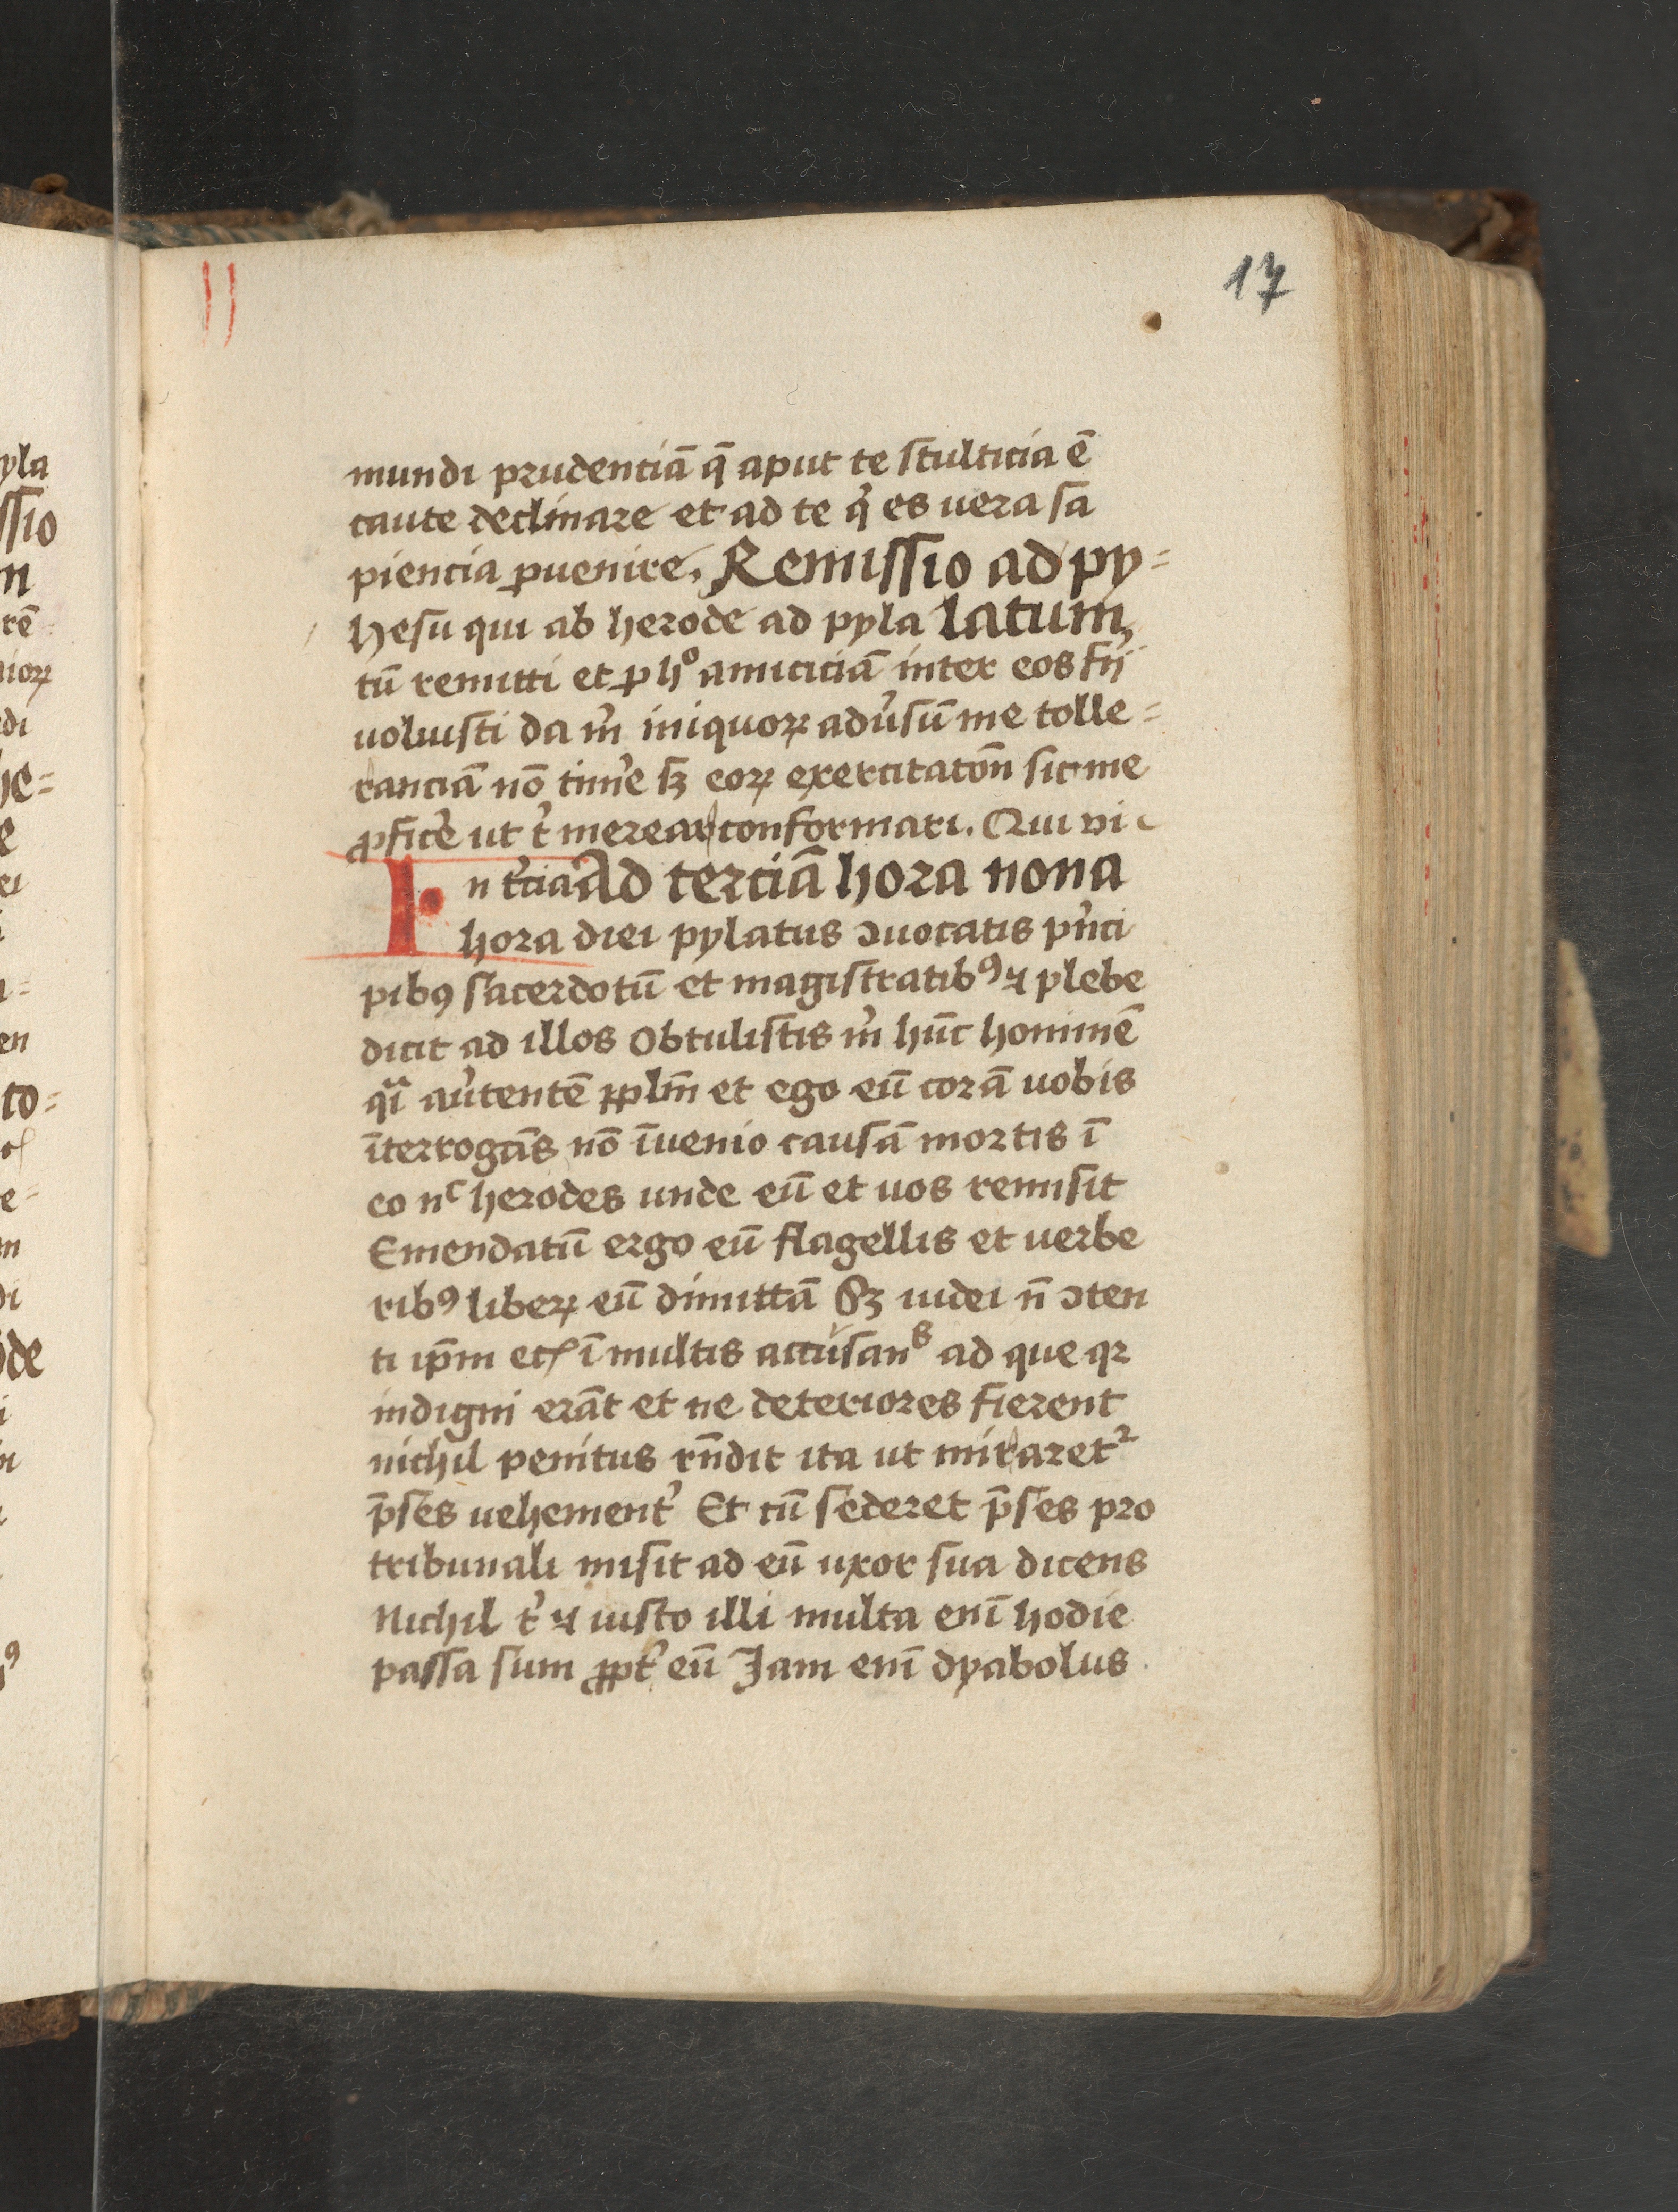 17
mundi prudenciā q̄ aput te stulticia ē
caute declinare et ad te q' es uera sa
piencia ꝑuenire. Remissio ad py=
hesu qui ab herode ad pyla latum,
tū remitti et ꝑ hͦ amiciciā inter eos
uoluisti da m̉ iniquoꝝ adu̓sū me tolle=
ranciā nō time̓ sꝫ eoꝝ exercitatōn sic me
ꝓfice̓ ut t̓ merear conformari. Qui vi
In t̓cia Ad terciā hora nona
hora diei pylatus ꝯuocatis pͥnci
pibꝰ sacerdotū et magistratibꝰ ⁊ plebe
dicit ad illos Obtulistis m̉ hūc hominē
qͣi au̓tentē ꝓplm̄ et ego eū corā uobis
īterrogās nō īuenio causā mortis ī
eo nͨ herodes unde eū et uos remisit
Emendatū ergo eū flagellis et uerbe
ribꝰ liberꝝ eū dimittā Sꝫ iudei n̄ ꝯten
ti ip̄m ī multis accusanˢ ad que qꝛ
indigni erāt et ne deteriores fierent
nichil penitus rn̄dit ita ut miraret²
p̄ses uehement̓ Et cū sederet p̄ses pro
tribunali misit ad eū uxor sua dicens
Nichil t̓ ⁊ iusto illi multa enī hodie
passa sum ꝓpt̓ eū Jam enī dyabolus